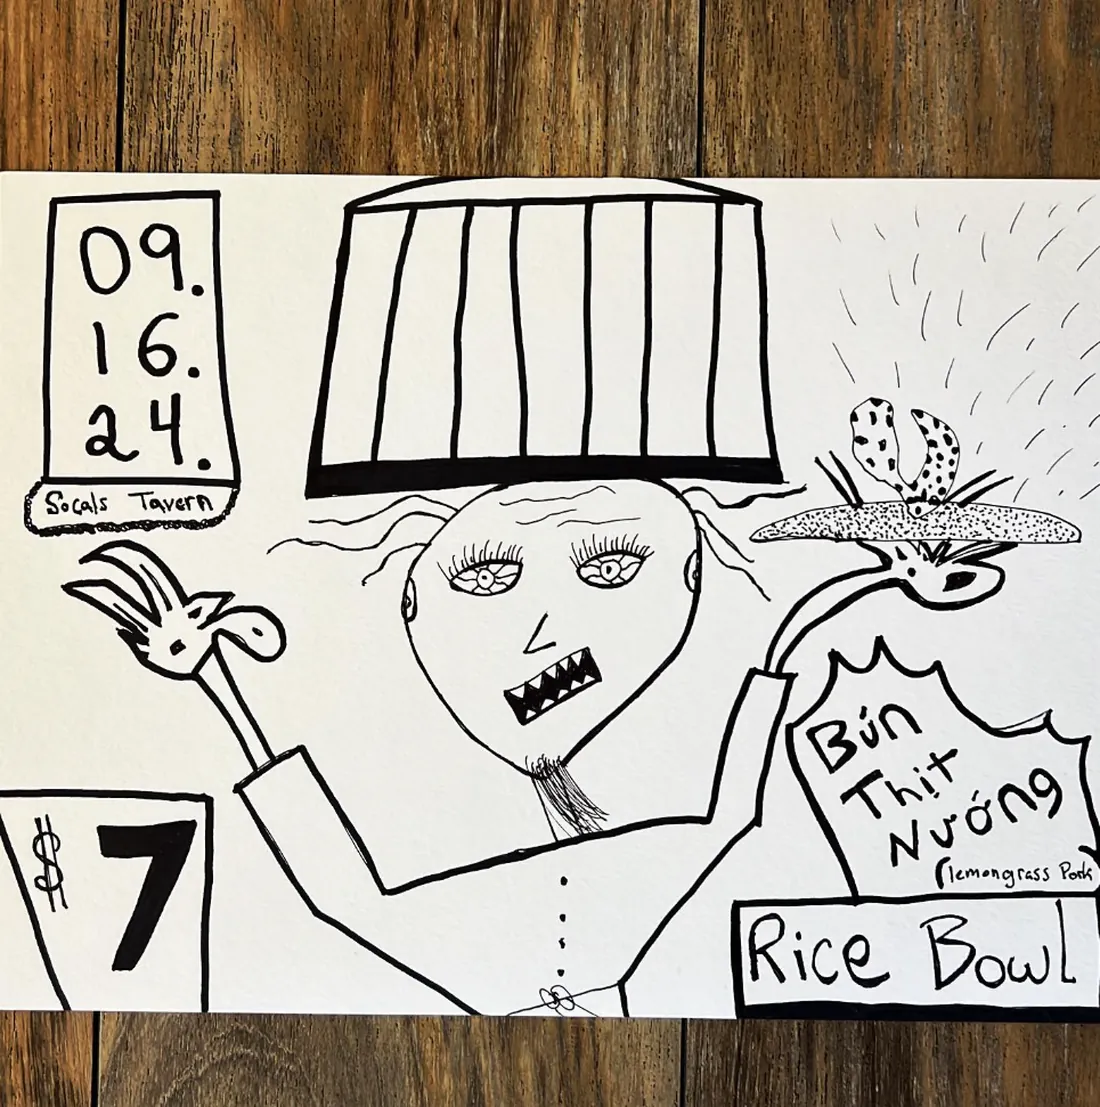 09.
16.
24.
Socals Tavern
$7
Bún
Thịt
Nướng
(lemongrass Pork
Rice Bowl